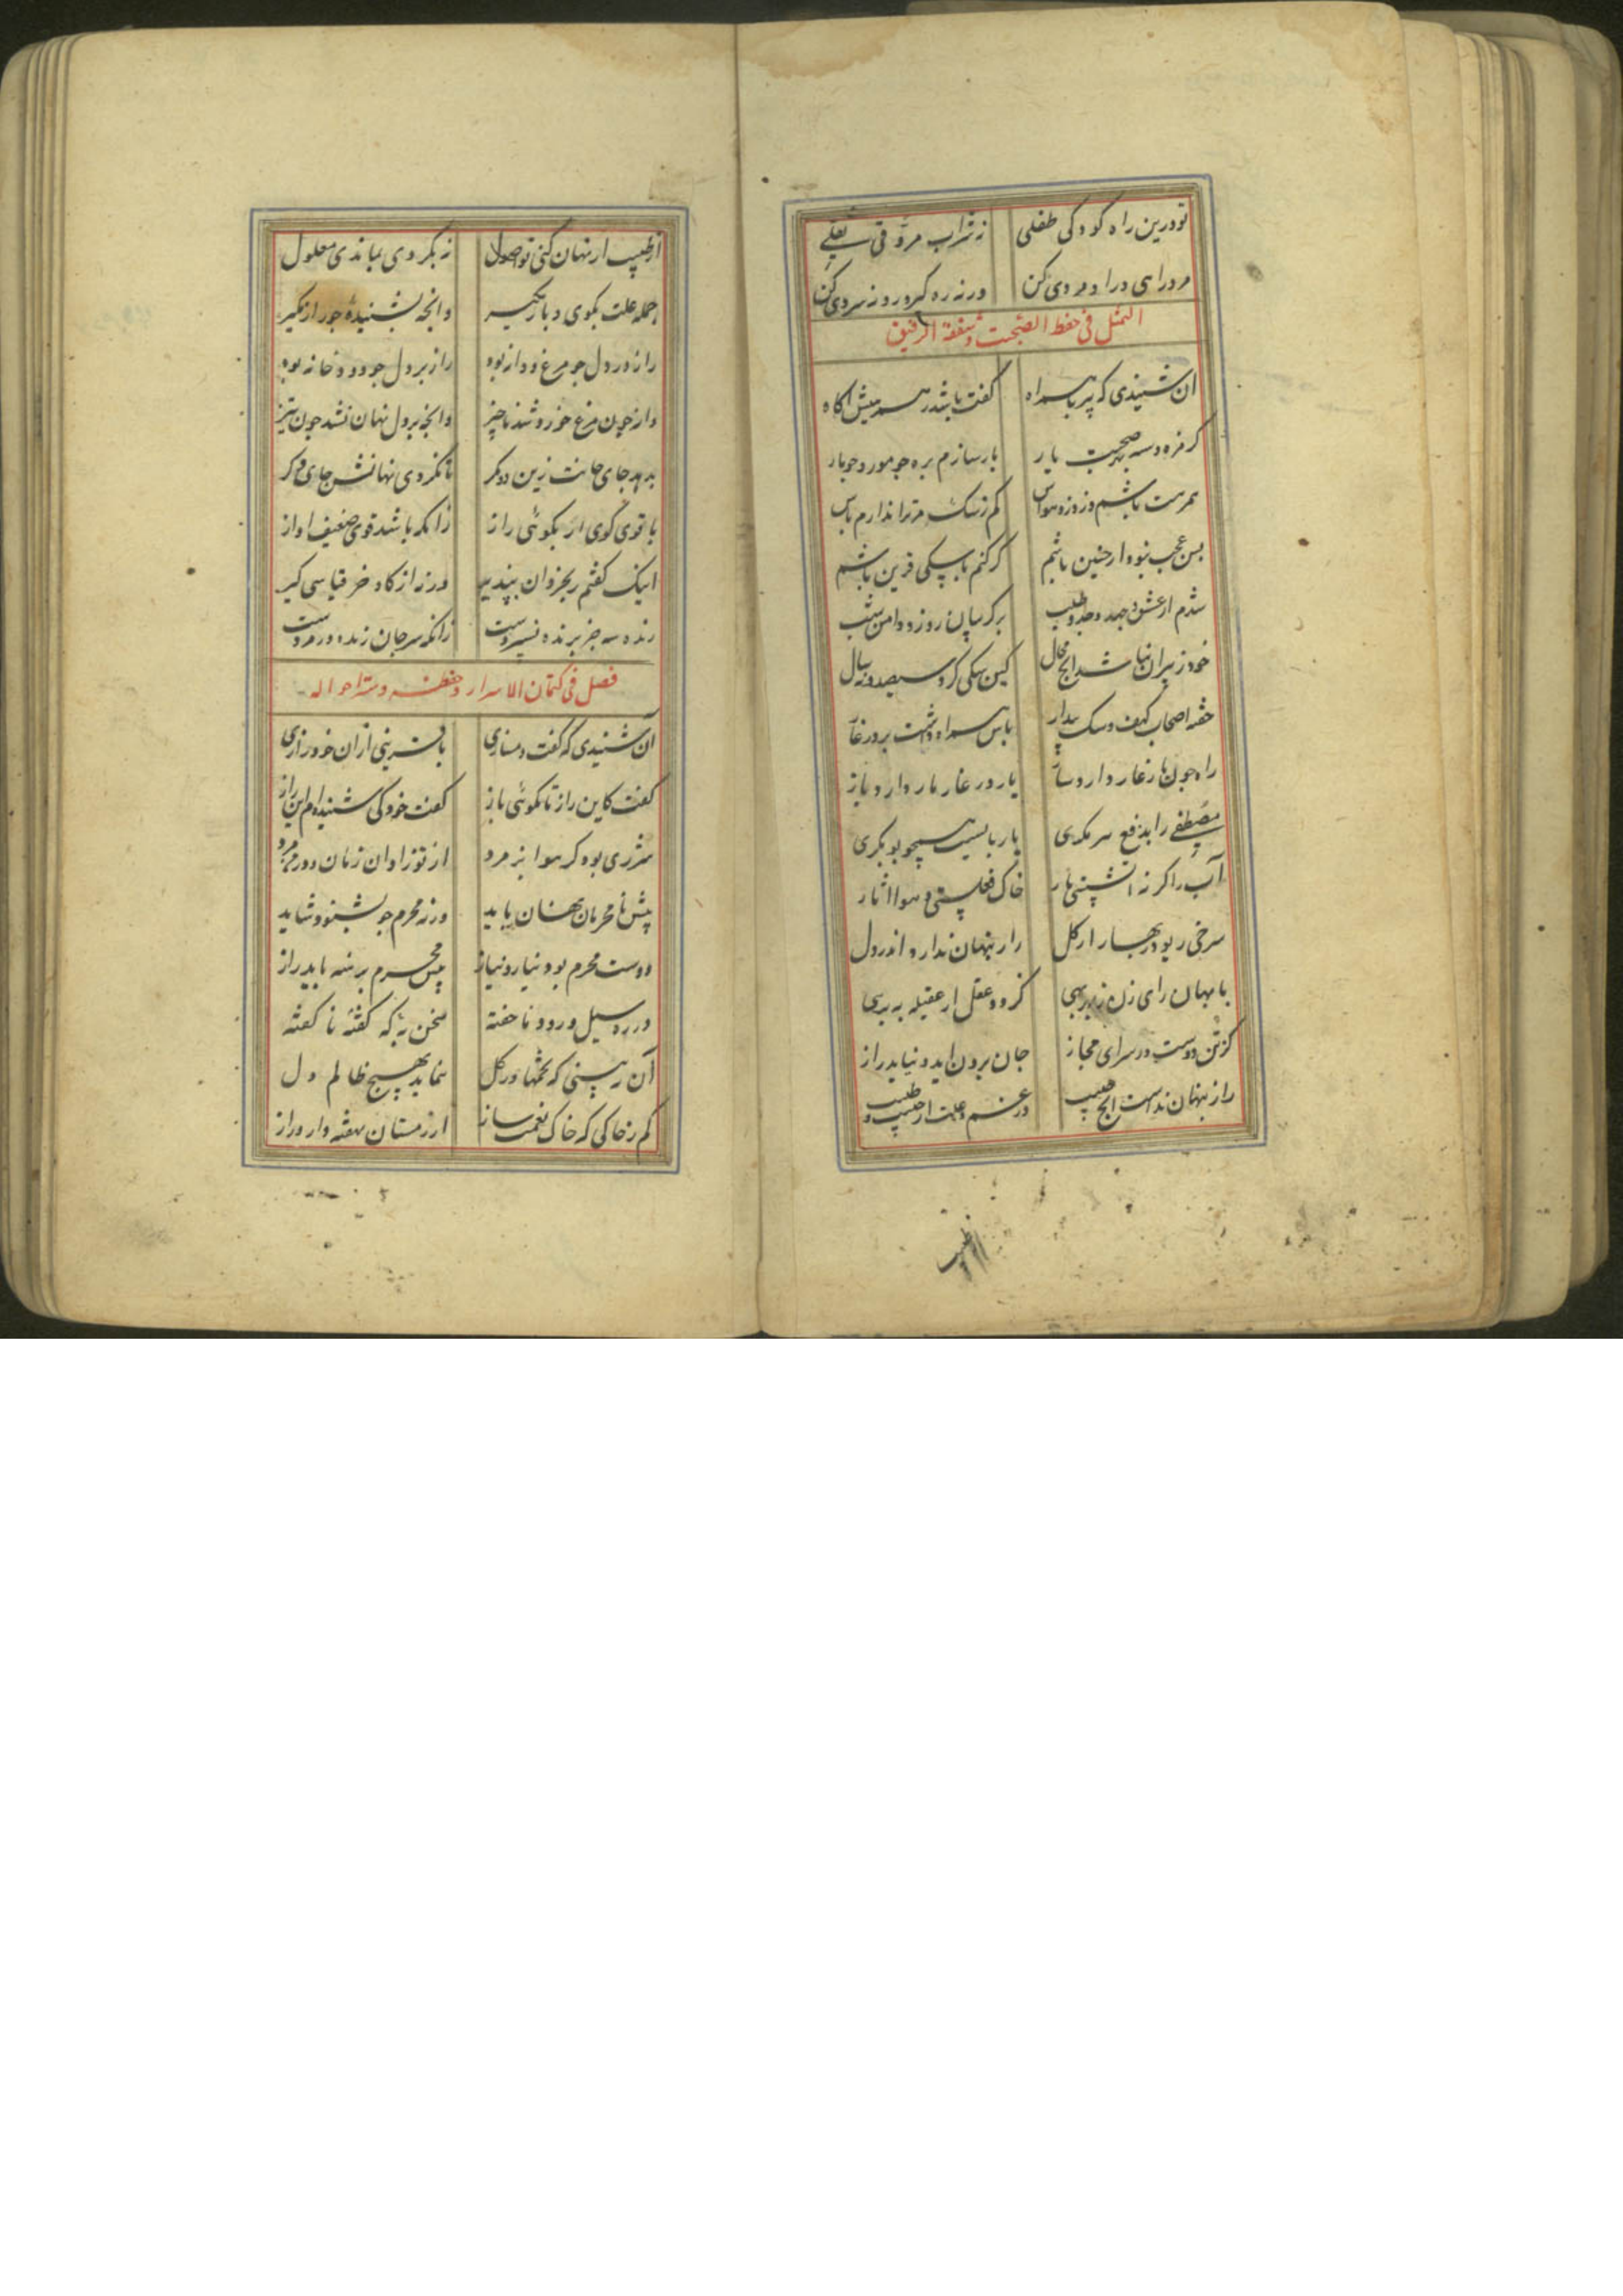 تو درین راه کودکی طفلی ز شراب مروقی ثفلی
مرد راهی درا و مردی کن ورنه ره گیر و روز سردی کن
التمثل فی حفظ الصحبت و شفقة الرفیق
آن شنیدی که پیر با همراه گفت باشد رهم پیش آگاه
یار سازم بره چو مور و چو مار
همرهت باشم و زوزه هراس کم ز سک مر ترا ندارم پاس
بس عجب نبود ار چنین باشم گر کنم با سکی قرین باشم
شدم از عشق و جهد و جد و طلب بر گریبان روز و دامن شب
خود ز پیران نباشد اینج محال کین سکی کرد سیصد و نه سال
خفته اصحاب کهف و سک بیدار پاس همراه داشت بر در غار
راه چون نار غار دارد ساز یار در غار مار دارد باز
مصطفی را بدفع هر مکری یار بایست همچو بوبکری
آب را گر نه آتشستی یار خاک فعلستی و هوا آثار
سرخی رو بود بهار از گل راز پنهان ندارد اندر دل
با بهان رای زن ز بهر بهی گردد عقل از عقیله به برهی
کز تن دوست در سرای مجاز جان برون آید و نیاید راز
راز پنهان نداشت ایج حبیب در غم و علت از حبیب و طبیب
از طبیب
از طبیب ار نهان کنی تو اصول نه بگردی بماندی معلول
جمله علت بگوی و باز مگیر وانچه بشنیده چو راز مگیر
راز در دل چو مرغ و دانه بود راز بر دل چو دود و خانه بود
دانه چون مرغ خورد شد ناچیز وانچه بر دل نهان نشد چون تیز
بدهد جای جانت زین دو مکر تا نکردی نهانش جای دگر
با قوی گوی ار بگوئی راز زانکه باشد قوی ضعیف آواز
اینک گفتم ربحز و ان بپذیر ورنه از گاو خر قیاسی گیر
زنده سر جز برنده نسپردست زانکه سر جان زنده در مردست
فصل فی کتمان الاسرار و حفظه و ستر احواله
آن شنیدی که گفت دمسازی با قرینی از آن خود رازی
گفت کاین راز تا نگوئی باز گفت خود کی شنیده‌ام این راز
شرری بود کز هوا بفسرد از تو زاد آن زمان و در من مرد
پیش نامحرمان نهان باید ورنه محرم چو بشنود شاید
دوست محرم بود نیاز و نیاز پیش محرم برهنه باید راز
در ره سیل و رود ناخفته سخن به که گفته ناگفته
آن نه بینی که تخمها در گل ننماید بهیچ ظالم دل
کم ز خاکی که خاک نغمت ساز از زمستان نهفته دارد راز